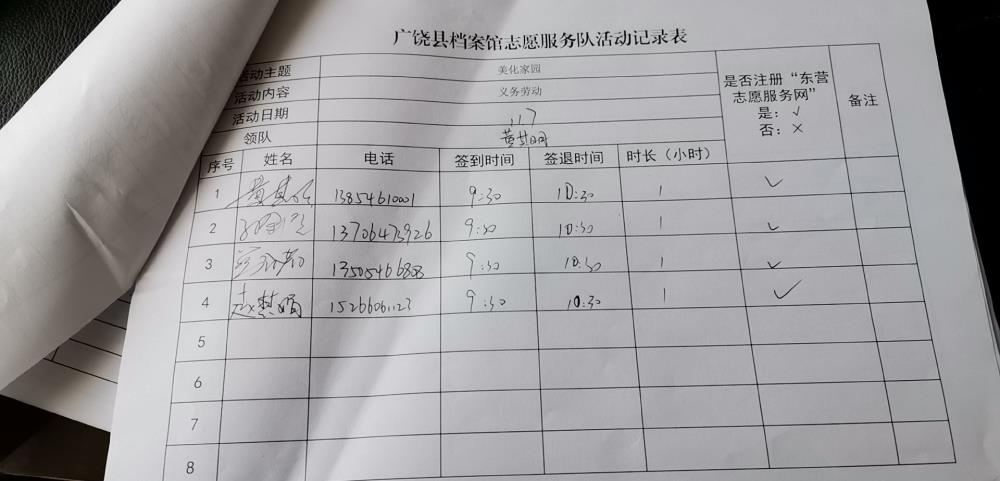 广饶县档案馆志愿服务队活动记录表
活动主题 美化家园 是否注册“东营志愿服务网” 是：√ 否：× 备注
活动内容 义务劳动
活动日期 11.7
领队
序号 姓名 电话 签到时间 签退时间 时长（小时）
1 13854610001 9:30 10:30 1 √
2 13706473926 9:30 10:30 1 √
3 13505466808 9:30 10:30 1 √
4 赵梦娟 15266061123 9:30 10:30 1 √
5
6
7
8